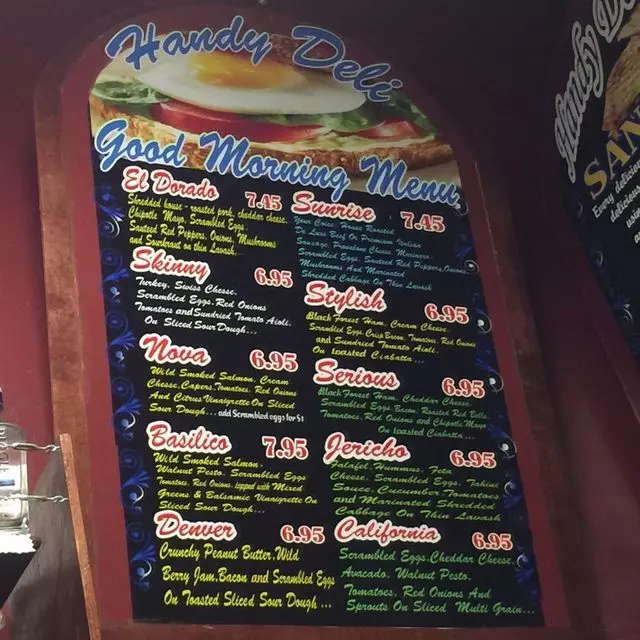 Handy Deli
Good Morning Menu
El Dorado 7.45
Shredded house - roasted pork, cheddar cheese,
Chipotle Mayo, Scrambled Eggs,
Sauteed Red Peppers, Onions, Mushrooms
and Sourkraut on thin Lavash...
Skinny 6.95
Turkey, Swiss Cheese,
Scrambled Eggs, Red Onions
Tomatoes and Sundried Tomato Aioli,
On Sliced Sour Dough...
Nova 6.95
Wild Smoked Salmon, Cream
Cheese, Capers, Tomatoes, Red Onions
And Citrus Vinaigrette On Sliced
Sour Dough... add Scrambled eggs for $1
Basilico 7.95
Wild Smoked Salmon,
Walnut Pesto, Scrambled Eggs
Tomatoes, Red Onions, topped with Mixed
Greens & Balsamic Vinaigrette On
Sliced Sour Dough...
Denver 6.95
Crunchy Peanut Butter, Wild
Berry Jam, Bacon and Scrambled Eggs
On Toasted Sliced Sour Dough ...
Sunrise 7.45
Your Coice: House Roasted
De Luxe Beef Or Premium Italian
Sausage, Provolone Cheese, Marinara,
Scrambled Eggs, Sauteed Red Peppers, Onions,
Mushrooms And Marinated
Shredded Cabbage On Thin Lavash
Stylish 6.95
Black Forest Ham, Cream Cheese,
Scrambled Eggs, Crisp Bacon, Tomatoes, Red Onions
and Sundried Tomato Aioli,
On toasted Ciabatta...
Serious 6.95
Black Forest Ham, Cheddar Cheese,
Scrambled Eggs, Bacon, Roasted Red Bells,
Tomatoes, Red Onions and Chipotle Mayo
On toasted Ciabatta...
Jericho 6.95
Falafel, Hummus, Feta
Cheese, Scrambled Eggs, Tahini
Souce, Cucumber Tomatoes
and Marinated Shredded
Cabbage On Thin Lavash
California 6.95
Scrambled Eggs, Cheddar Cheese,
Avacado, Walnut Pesto,
Tomatoes, Red Onions And
Sprouts On Sliced Multi Grain...
Handy De
SAN
Every delicio
delicious